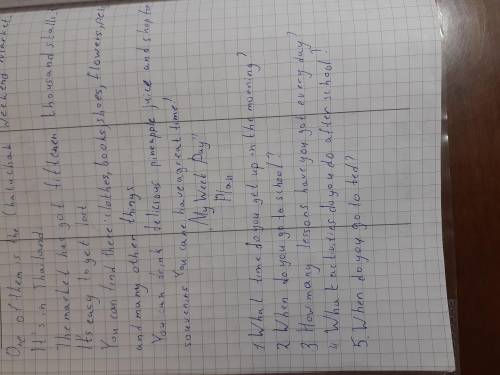 One of them is the Chatuchak Weekend Market
It's in Thailand
The market has got fifteen thousand stalls
It's easy to get lost
You can find there: clothes, books, shoes, flowers,
and many other things
You can drink delicious pineapple juice and shop for
souvenirs You have a great time!
"My Week Day"
Plan
1 What time do you get up in the morning?
2 When do you go to school?
3. How many lessons have you got every day?
4. What activities do you do after school?
5. When do you go to bed?